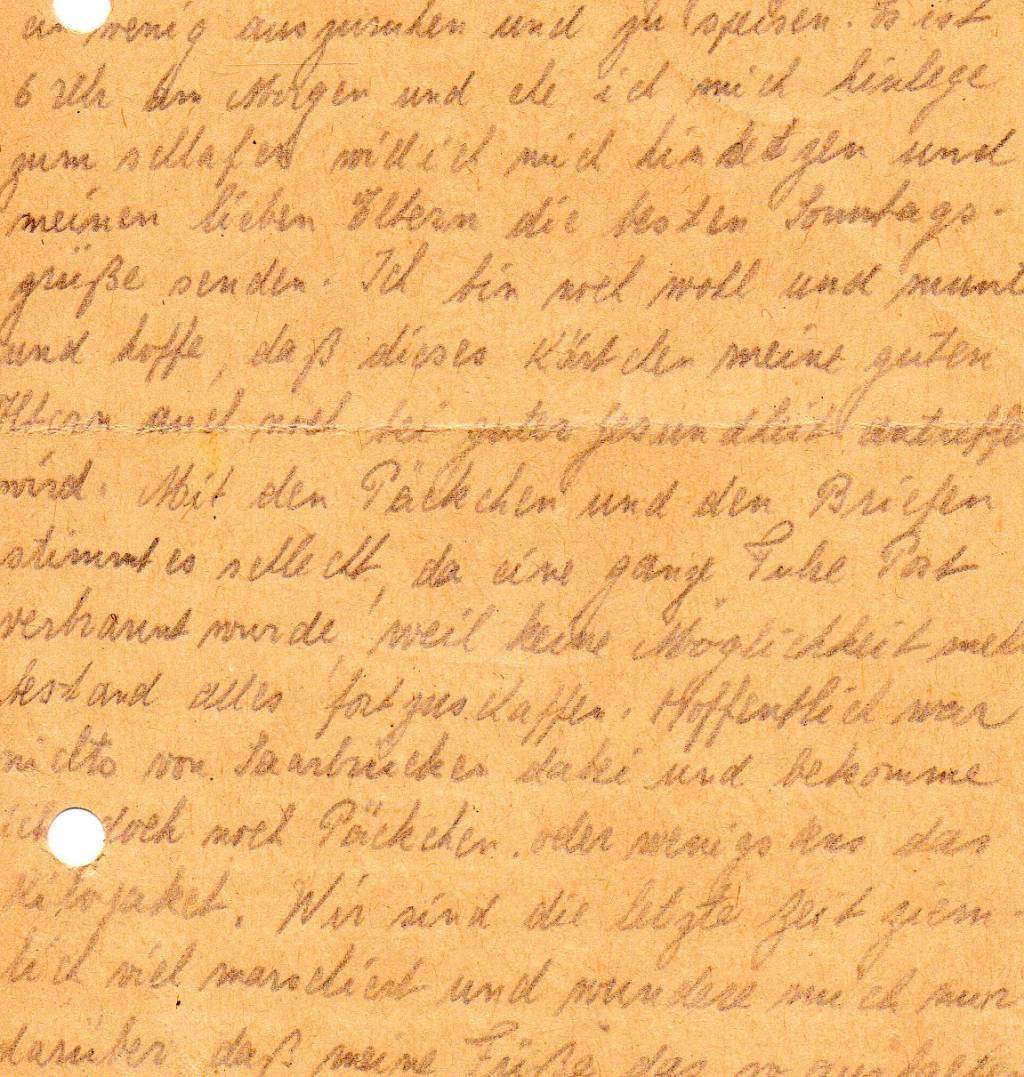 ein wenig auszuruhen und zu speisen. Es ist
6 Uhr am Morgen und ehe ich mich hinlege
zum schlafen will ich mich hinsetzen und
meinen lieben Eltern die besten Sonntags-
grüße senden. Ich bin noch wohl und munt
und hoffe, daß dieses Kärtchen meine guten
Eltern auch noch bei guter Gesundheit antreffe
wird. Mit den Päckchen und den Briefen
stimmt es schlecht, da eine ganze Fuhre Post
verbrannt wurde, weil keine Möglichkeit mehr
bestand alles fortzuschaffen. Hoffentlich war
nichts von Saarbrücken dabei und bekomme
ich doch noch Päckchen oder wenigstens das
Kilopaket. Wir sind die letzte Zeit ziem-
lich viel marschiert und wundere mich nur
darüber daß meine Füße das so